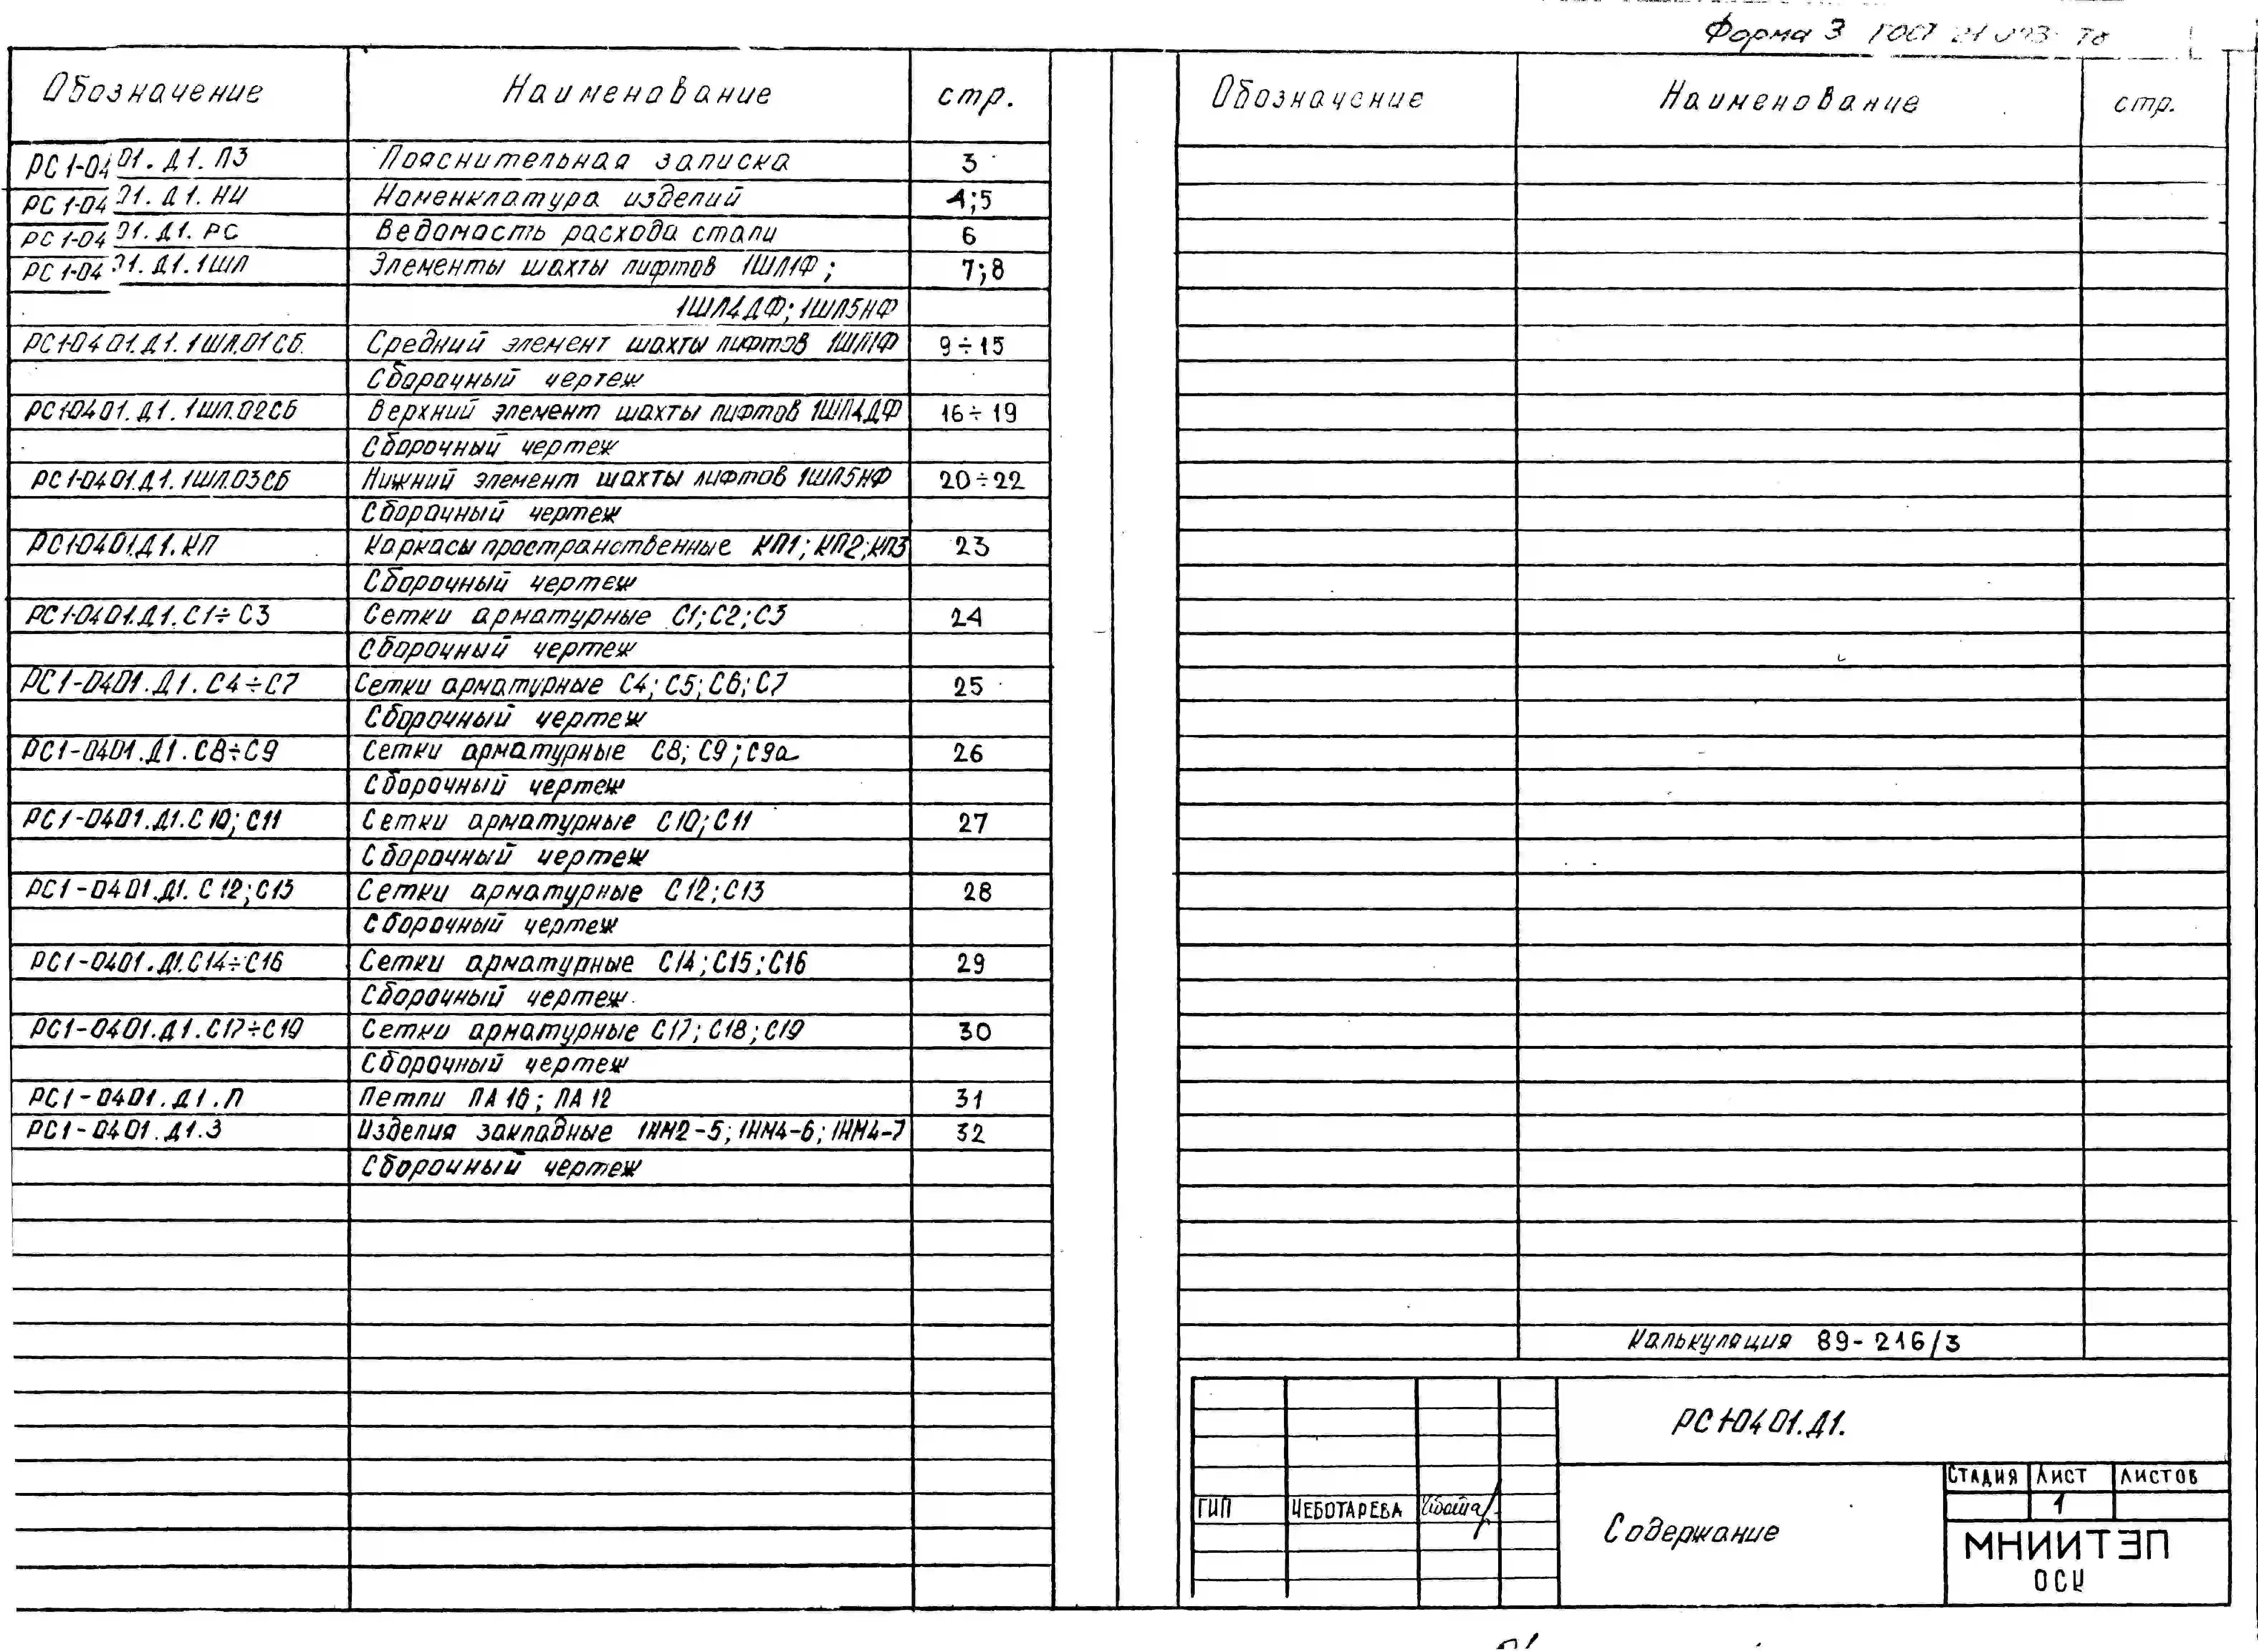 Форма 3 ГОСТ
Обозначение Наименование стр.
РС1-0401.Д1.ПЗ Пояснительная записка 3
РС1-0401.Д1.НИ Номенклатура изделий 4;5
РС1-0401.Д1.РС Ведомость расхода стали 6
РС1-0401.Д1.1ШЛ Элементы шахты лифтов 1ШЛ1Ф; 7;8
1ШЛ4ДФ; 1ШЛ5НФ
РС1-0401.Д1.1ШЛ.01СБ Средний элемент шахты лифтов 1ШЛ1Ф 9÷15
Сборочный чертеж
РС1-0401.Д1.1ШЛ.02СБ Верхний элемент шахты лифтов 1ШЛ4ДФ 16÷19
Сборочный чертеж
РС1-0401.Д1.1ШЛ.03СБ Нижний элемент шахты лифтов 1ШЛ5НФ 20÷22
Сборочный чертеж
РС1-0401.Д1.КП Каркасы пространственные КП1; КП2; КП3 23
Сборочный чертеж
РС1-0401.Д1.С1÷С3 Сетки арматурные С1; С2; С3 24
Сборочный чертеж
РС1-0401.Д1.С4÷С7 Сетки арматурные С4; С5; С6; С7 25
Сборочный чертеж
РС1-0401.Д1.С8÷С9 Сетки арматурные С8; С9; С9а 26
Сборочный чертеж
РС1-0401.Д1.С10; С11 Сетки арматурные С10; С11 27
Сборочный чертеж
РС1-0401.Д1.С12; С13 Сетки арматурные С12; С13 28
Сборочный чертеж
РС1-0401.Д1.С14÷С16 Сетки арматурные С14; С15; С16 29
Сборочный чертеж
РС1-0401.Д1.С17÷С19 Сетки арматурные С17; С18; С19 30
Сборочный чертеж
РС1-0401.Д1.П Петли ПА16; ПА12 31
РС1-0401.Д1.З Изделия закладные 1НМ2-5; 1НМ4-6; 1НМ4-7 32
Сборочный чертеж
Обозначение Наименование стр.
Калькуляция 89-216/3
РС1-0401.Д1.
СТАДИЯ ЛИСТ ЛИСТОВ
1
ГИП ЧЕБОТАРЕВА
Содержание
МНИИТЭП
ОСК